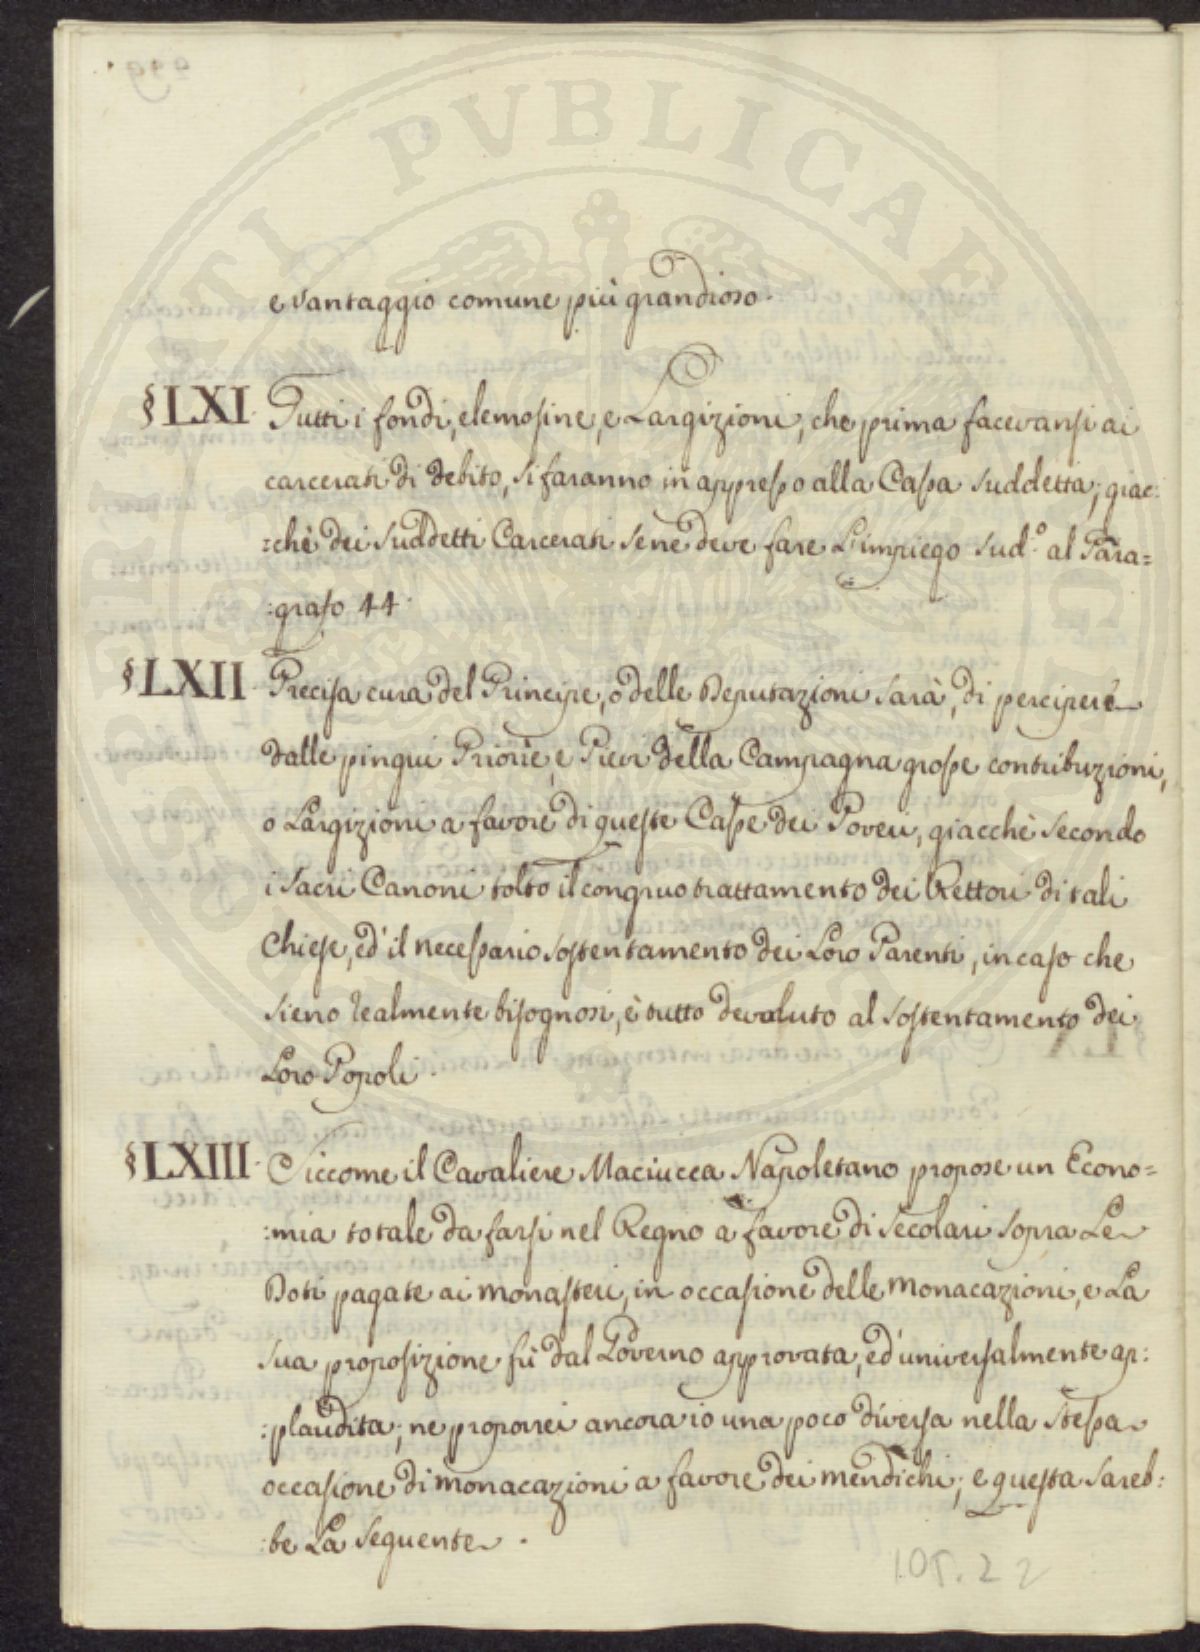 e vantaggio comune più grandioso.
§LXI. Tutti i fondi, elemosine, e Largizioni, che prima facevansi ai
carcerati di debito, si faranno in appresso alla Casa suddetta; giac:
:chè dei suddetti Carcerati se ne deve fare L'impiego sud.º al Para=
:grafo 44.
§LXII. Precisa cura del Principe, o delle Deputazioni sarà, di percipere
dalle pingui Priorìe, e Pievi della Campagna grosse contribuzioni,
o Largizioni a favore di queste Case dei Poveri, giacchè secondo
i Sacri Canoni tolto il congruo trattamento dei Rettori di tali
Chiese, ed' il necessario sostentamento dei Loro Parenti, in caso che
sieno realmente bisognosi, è tutto devoluto al sostentamento dei
Loro Popoli.
§LXIII. Siccome il Cavaliere Maciucca Napoletano propose un Econo=
:mia totale da farsi nel Regno a favore di Secolari sopra Le
Doti pagate ai monasteri, in occasione delle monacazioni, e La
sua proposizione fù dal Governo approvata, ed' universalmente ap:
:plaudita; ne proporrei ancora io una poco diversa nella stessa
occasione di monacazioni a favore dei mendichi; e questa sareb:
:be La seguente.
105.22
SPQR
PVBLICAE